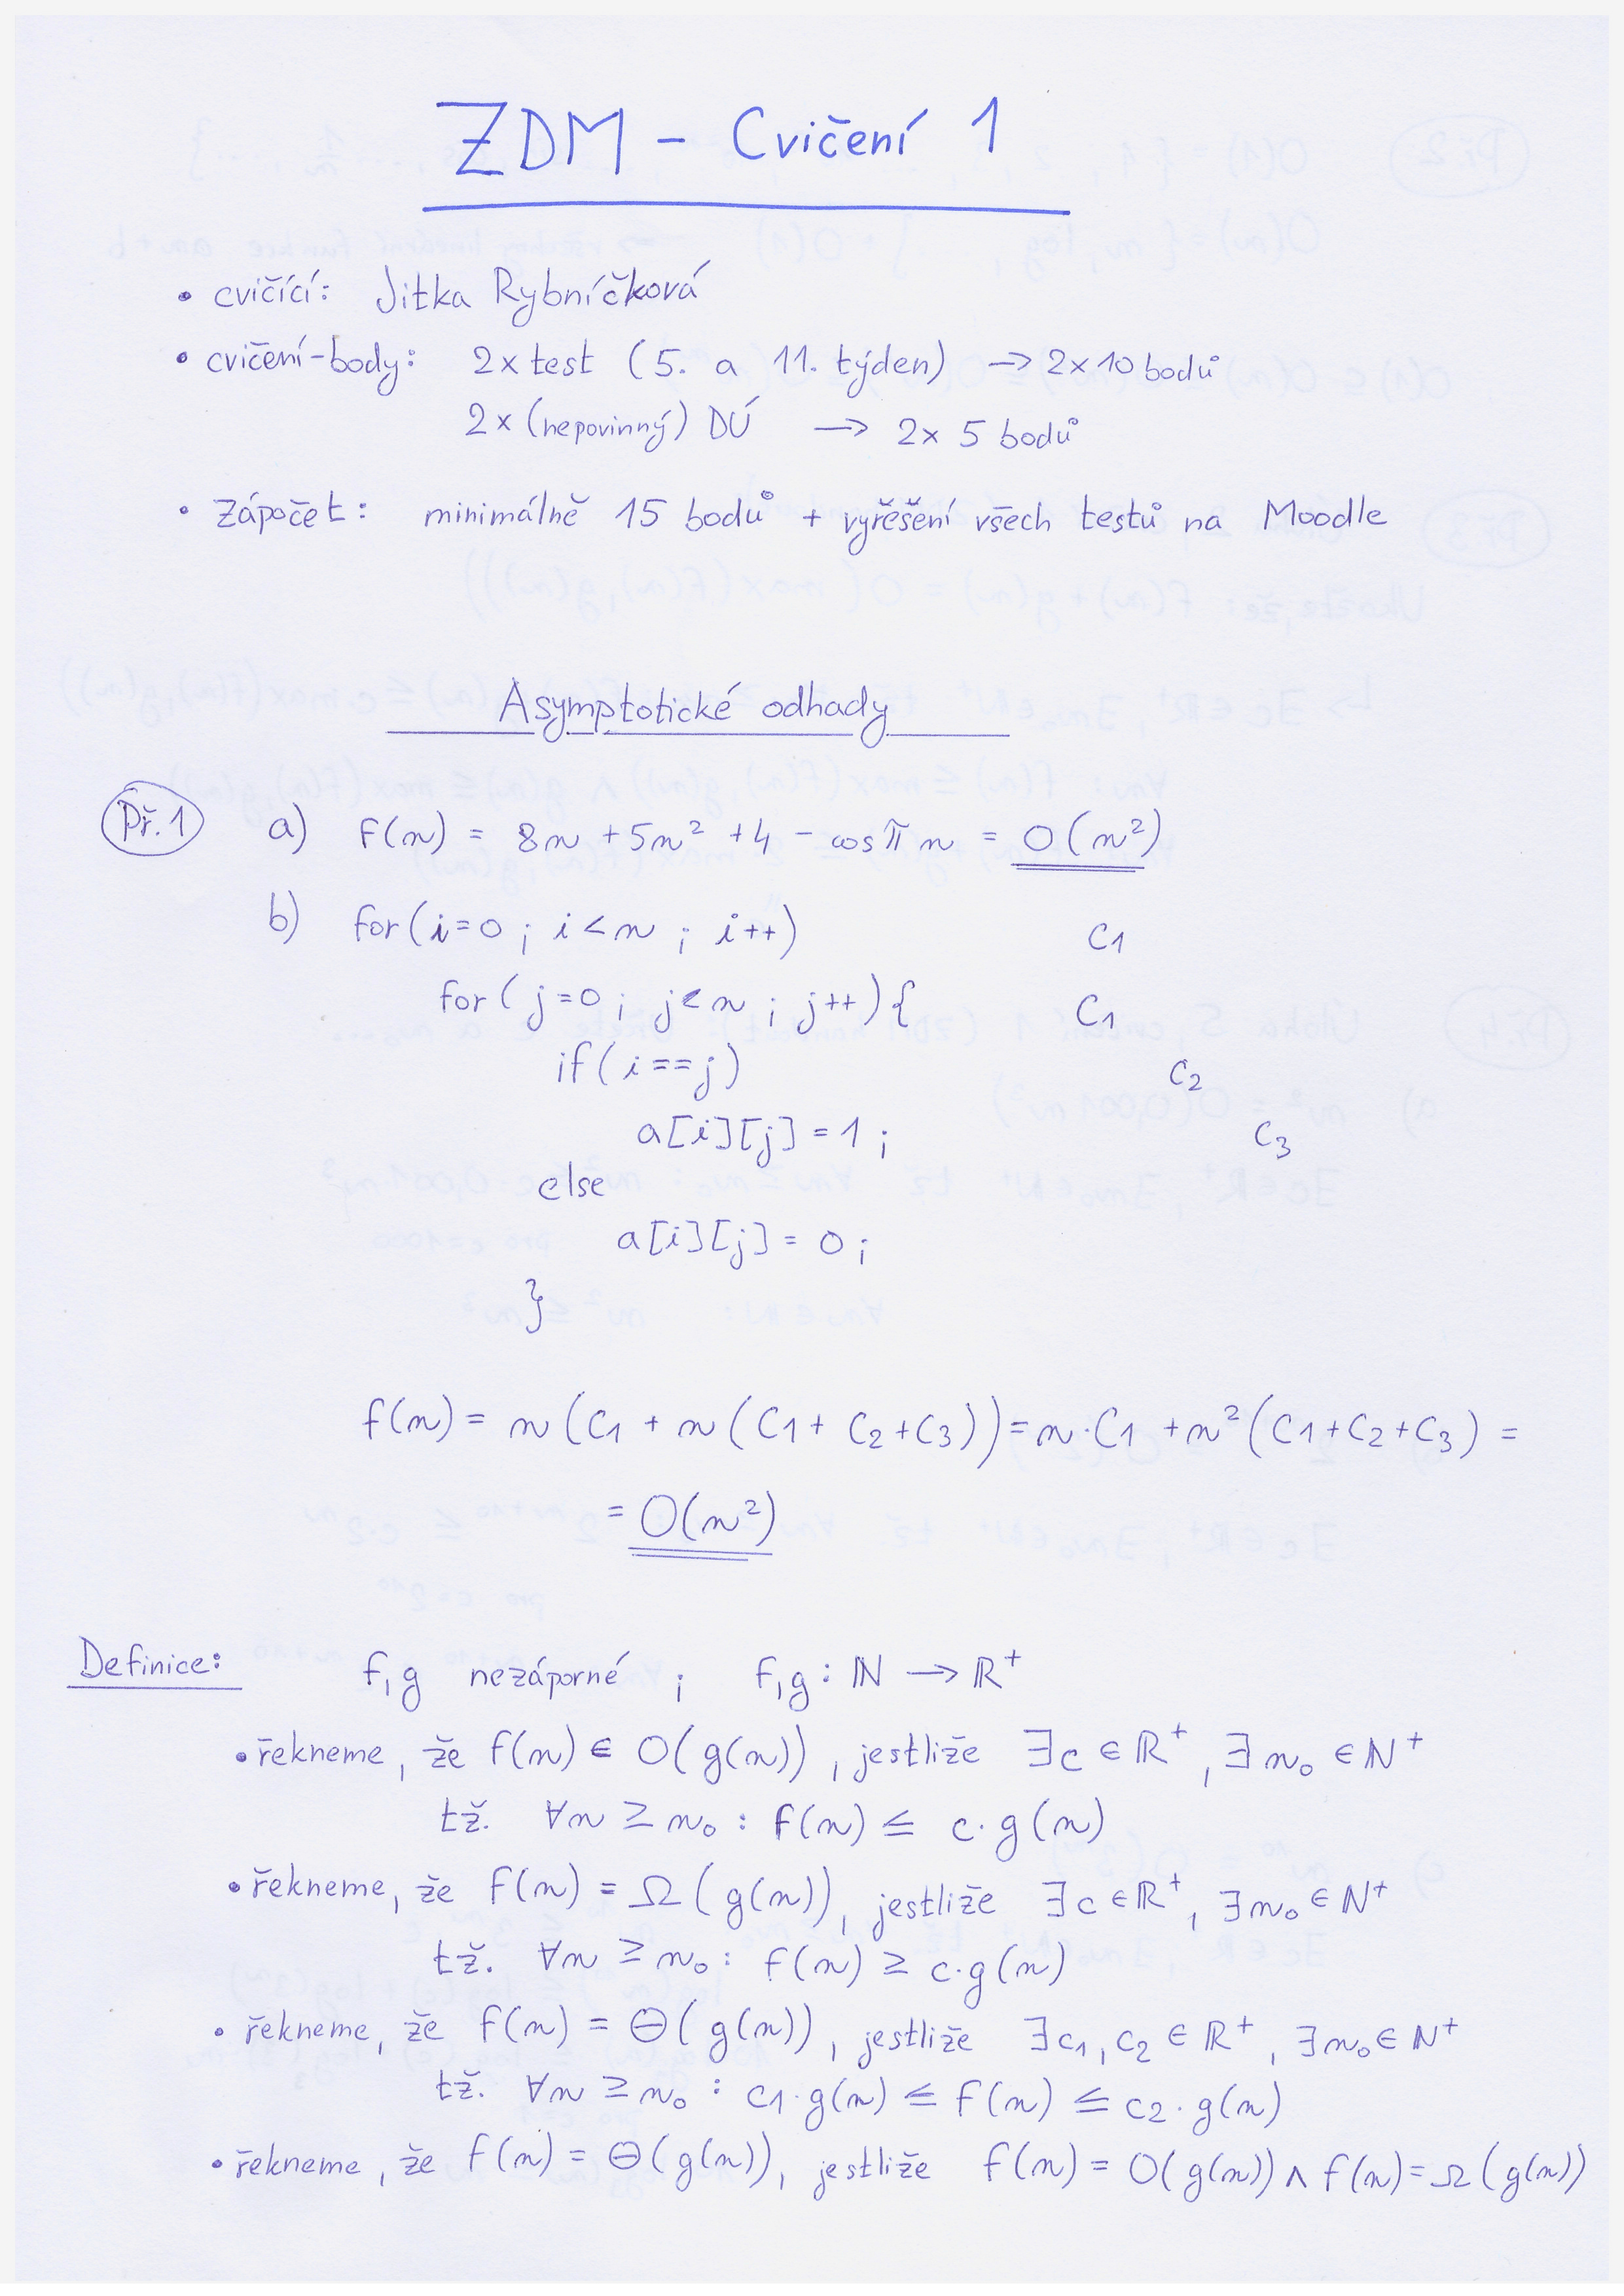 ZDM - Cvičení 1
• cvičící: Jitka Rybníčková
• cvičení-body: 2x test (5. a 11. týden) → 2x10 bodů
2x (nepovinný) DÚ → 2x 5 bodů
• Zápočet: minimálně 15 bodů + vyřešení všech testů na Moodle
Asymptotické odhady
Př.1 a) f(n) = 8n + 5n² + 4 - cos π n = O(n²)
b) for(i=0 ; i<n ; i++) C1
for(j=0 ; j<n ; j++){ C1
if(i==j) C2
a[i][j] = 1 ; C3
else
a[i][j] = 0 ;
}
f(n) = n(C1 + n(C1 + C2 + C3)) = n·C1 + n²(C1+C2+C3) =
= O(n²)
Definice: f,g nezáporné ; f,g : ℕ → ℝ⁺
• řekneme, že f(n) ∈ O(g(n)), jestliže ∃c ∈ ℝ⁺, ∃n₀ ∈ ℕ⁺
tž. ∀n ≥ n₀ : f(n) ≤ c·g(n)
• řekneme, že f(n) = Ω(g(n)), jestliže ∃c ∈ ℝ⁺, ∃n₀ ∈ ℕ⁺
tž. ∀n ≥ n₀ : f(n) ≥ c·g(n)
• řekneme, že f(n) = Θ(g(n)), jestliže ∃c₁, c₂ ∈ ℝ⁺, ∃n₀ ∈ ℕ⁺
tž. ∀n ≥ n₀ : c1·g(n) ≤ f(n) ≤ c2·g(n)
• řekneme, že f(n) = Θ(g(n)), jestliže f(n) = O(g(n)) ∧ f(n) = Ω(g(n))